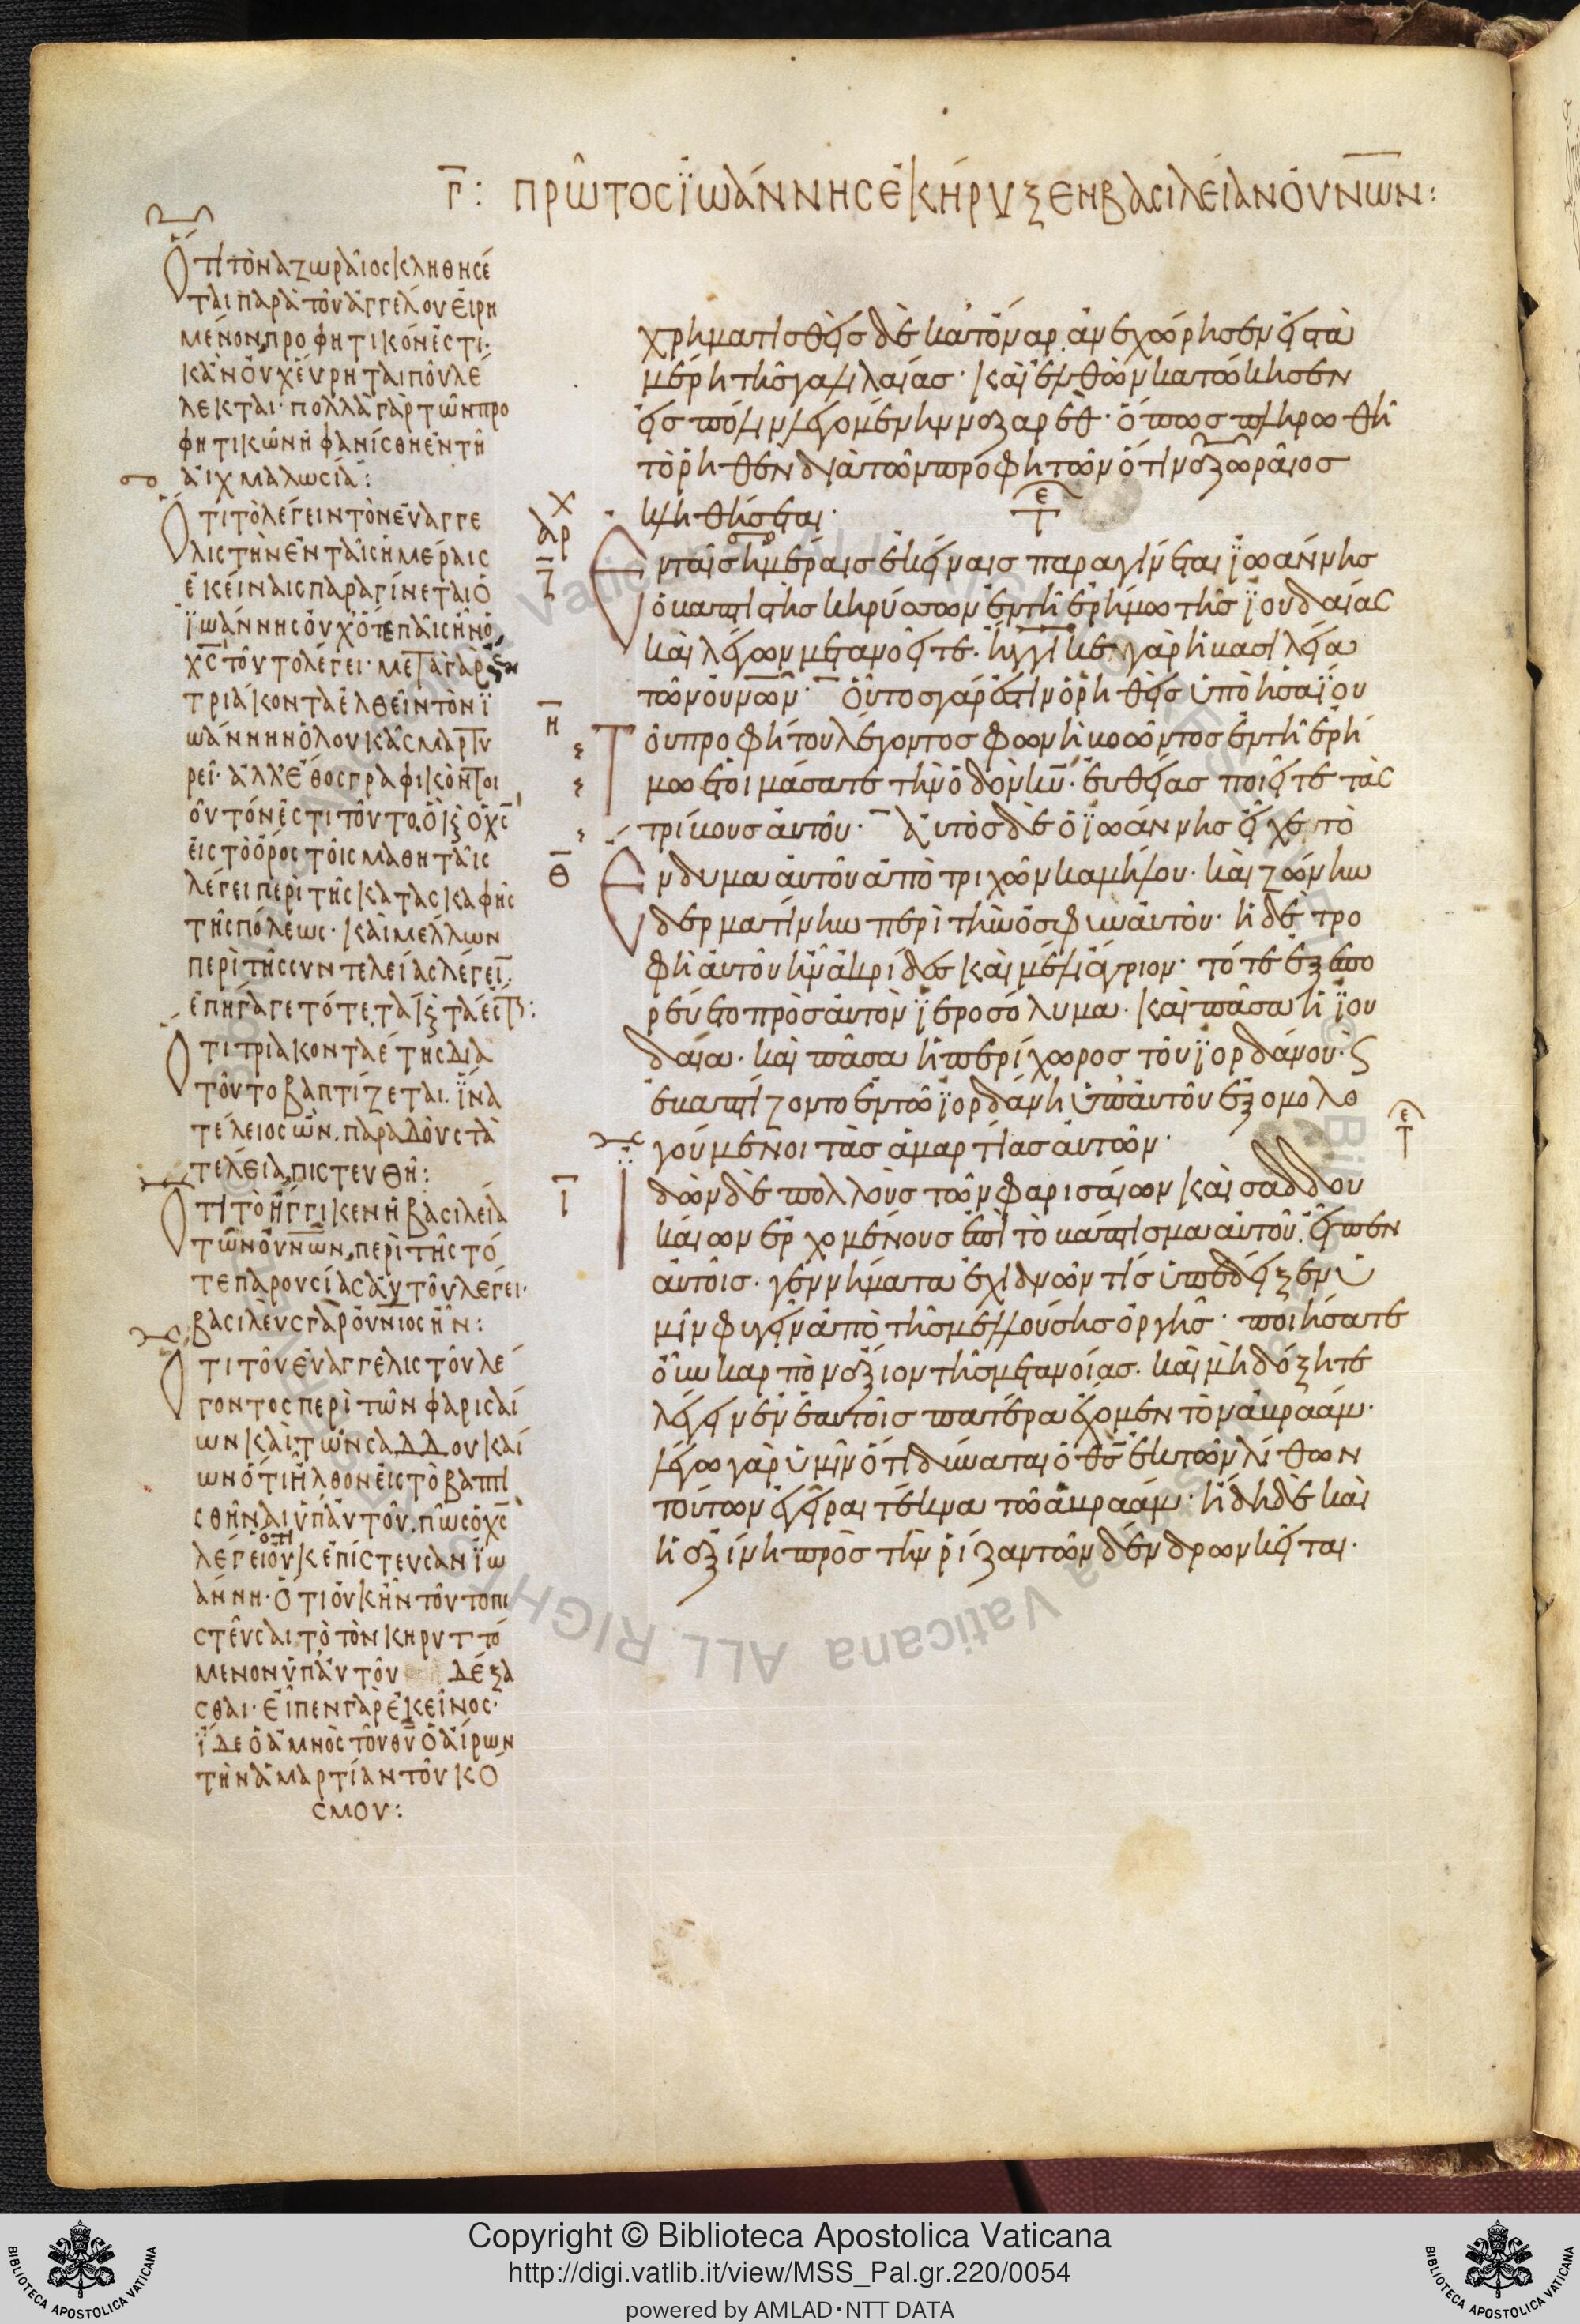 γ̅: πρῶτος ϊωάννης ἐκήρυξεν βασιλείαν οὐν̅ων:
Ὅτι τὸ ναζωραῖος κληθησέ
ται παρὰ τοῦ ἀγγέλου εἰρη
μένον προφητικόν ἐστι·
κἂν οὐχ εὕρηται ποῦ λέ
λεκται· πολλὰ γὰρ τῶν προ
φητικῶν ἠφανίσθη ἐν τῆ
αἰχμαλωσία:
Ὅτι τὸ λέγειν τὸν εὐαγγε
λιστὴν ἐν ταῖς ἡμέραις
ἐκείναις παραγίνεται ὁ
ϊωάννης οὐχ ὅτε παῖς ἦν ὁ
χ̅ς τοῦτο λέγει· μετὰ γὰρ
τριάκοντα ἐλθεῖν τὸν ϊ
ωάννην ὁ λουκᾶς μαρτυ
ρεῖ· ἀλλ' ἔθος γραφικὸν
εἰς τὸ ὄρος τοῖς μαθηταῖς
λέγει περὶ τῆς κατασκαφῆς
τῆς πόλεως· καὶ μέλλων
περὶ τῆς συντελείας λέγειν·
ἐπήγαγε τότε
Ὅτι τριακονταέτης διὰ
τοῦτο βαπτίζεται. ϊνα
τέλειος ὢν, παραδοὺς τὰ
τέλεια, πιστευθῆ:
Ὅτι τὸ ἤγγικεν ἡ βασιλεία
τῶν οὐν̅ων, περὶ τῆς τό
τε παρουσίας αὐτοῦ λέγει·
βασιλεὺς γὰρ οὐν̅ιος ἦν:
Ὅτι τοῦ εὐαγγελιστοῦ λέ
γοντος περὶ τῶν φαρισαί
ων καὶ τῶν σαδδουκαί
ων ὅτι ἦλθον εἰς τὸ βαπτι
σθῆναι ὑπ' αὐτοῦ, πῶς ὁ χ̅ς
λέγει ὅτι οὐκ ἐπίστευσαν ϊω
άννη· ὅτι οὐκ ἦν τοῦτο πι
στεῦσαι, τὸ τὸν κηρυττό
μενον ὑπ' αὐτοῦ δέξα
σθαι· εἶπεν γὰρ ἐκεῖνος·
ϊδε ὁ ἀμνὸς τοῦ θ̅υ ὁ αἴρων
τὴν ἁμαρτίαν τοῦ κό
σμου:
χρηματισθεὶς δὲ κατ' ὄναρ. ἀνεχώρησεν εἰς τὰ
μέρη τῆς γαλιλαίας· καὶ ἐλθὼν κατώκησεν
εἰς πόλιν λεγομένην ναζαρέθ· ὅπως πληρωθῆ
τὸ ῥηθὲν διὰ τῶν προφητῶν ὅτι ναζωραῖος
κληθήσεται·
Ἐν ταῖς ἡμέραις ἐκείναις παραγίνεται ϊωάννης
ὁ βαπτιστὴς κηρύσσων ἐν τῆ ἐρήμω τῆς ϊουδαίας
καὶ λέγων μετανοεῖτε· ἤγγικεν γὰρ ἡ βασιλεία
τῶν οὐν̅ων· οὗτος γάρ ἐστιν ὁ ῥηθεὶς ὑπὸ ἡσαϊου
Τοῦ προφήτου λέγοντος φωνὴ βοῶντος ἐν τῆ ἐρή
μω ἑτοιμάσατε τὴν ὁδὸν κ̅υ· εὐθείας ποιεῖτε τὰς
τρίβους αὐτοῦ· Αὐτὸς δὲ ὁ ϊωάννης εἶχε τὸ
Ἔνδυμα αὐτοῦ ἀπὸ τριχῶν καμήλου· καὶ ζώνην
δερματίνην περὶ τὴν ὀσφὺν αὐτοῦ· ἡ δὲ τρο
φὴ αὐτοῦ ἦν ἀκρίδες καὶ μέλι ἄγριον· τότε ἐξεπο
ρεύετο πρὸς αὐτὸν ϊεροσόλυμα· καὶ πᾶσα ἡ ϊου
δαία· καὶ πᾶσα ἡ περίχωρος τοῦ ϊορδάνου· ϛ
ἐβαπτίζοντο ἐν τῶ ϊορδάνη ὑπ' αὐτοῦ ἐξομολο
γούμενοι τὰς ἁμαρτίας αὐτῶν·
Ϊδὼν δὲ πολλοὺς τῶν φαρισαίων καὶ σαδδου
καίων ἐρχομένους ἐπὶ τὸ βάπτισμα αὐτοῦ. εἶπεν
αὐτοῖς· γεννήματα ἐχιδνῶν τίς ὑπέδειξεν ὑ
μῖν φυγεῖν ἀπὸ τῆς μελλούσης ὀργῆς· ποιήσατε
οὖν καρπὸν ἄξιον τῆς μετανοίας· καὶ μὴ δόξητε
λέγειν ἐν ἑαυτοῖς πατέρα ἔχομεν τὸν ἀβραάμ·
λέγω γὰρ ὑμῖν ὅτι δύναται ὁ θ̅ς ἐκ τῶν λίθων
τούτων ἐγεῖραι τέκνα τῶ ἀβραάμ· ἤδη δὲ καὶ
ἡ ἀξίνη πρὸς τὴν ῥίζαν τῶν δένδρων κεῖται·
Copyright © Biblioteca Apostolica Vaticana
http://digi.vatlib.it/view/MSS_Pal.gr.220/0054
powered by AMLAD·NTT DATA